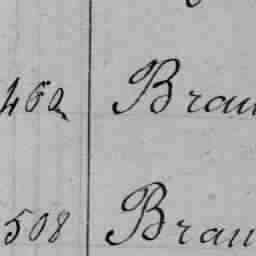 462 Brau
508 Brau